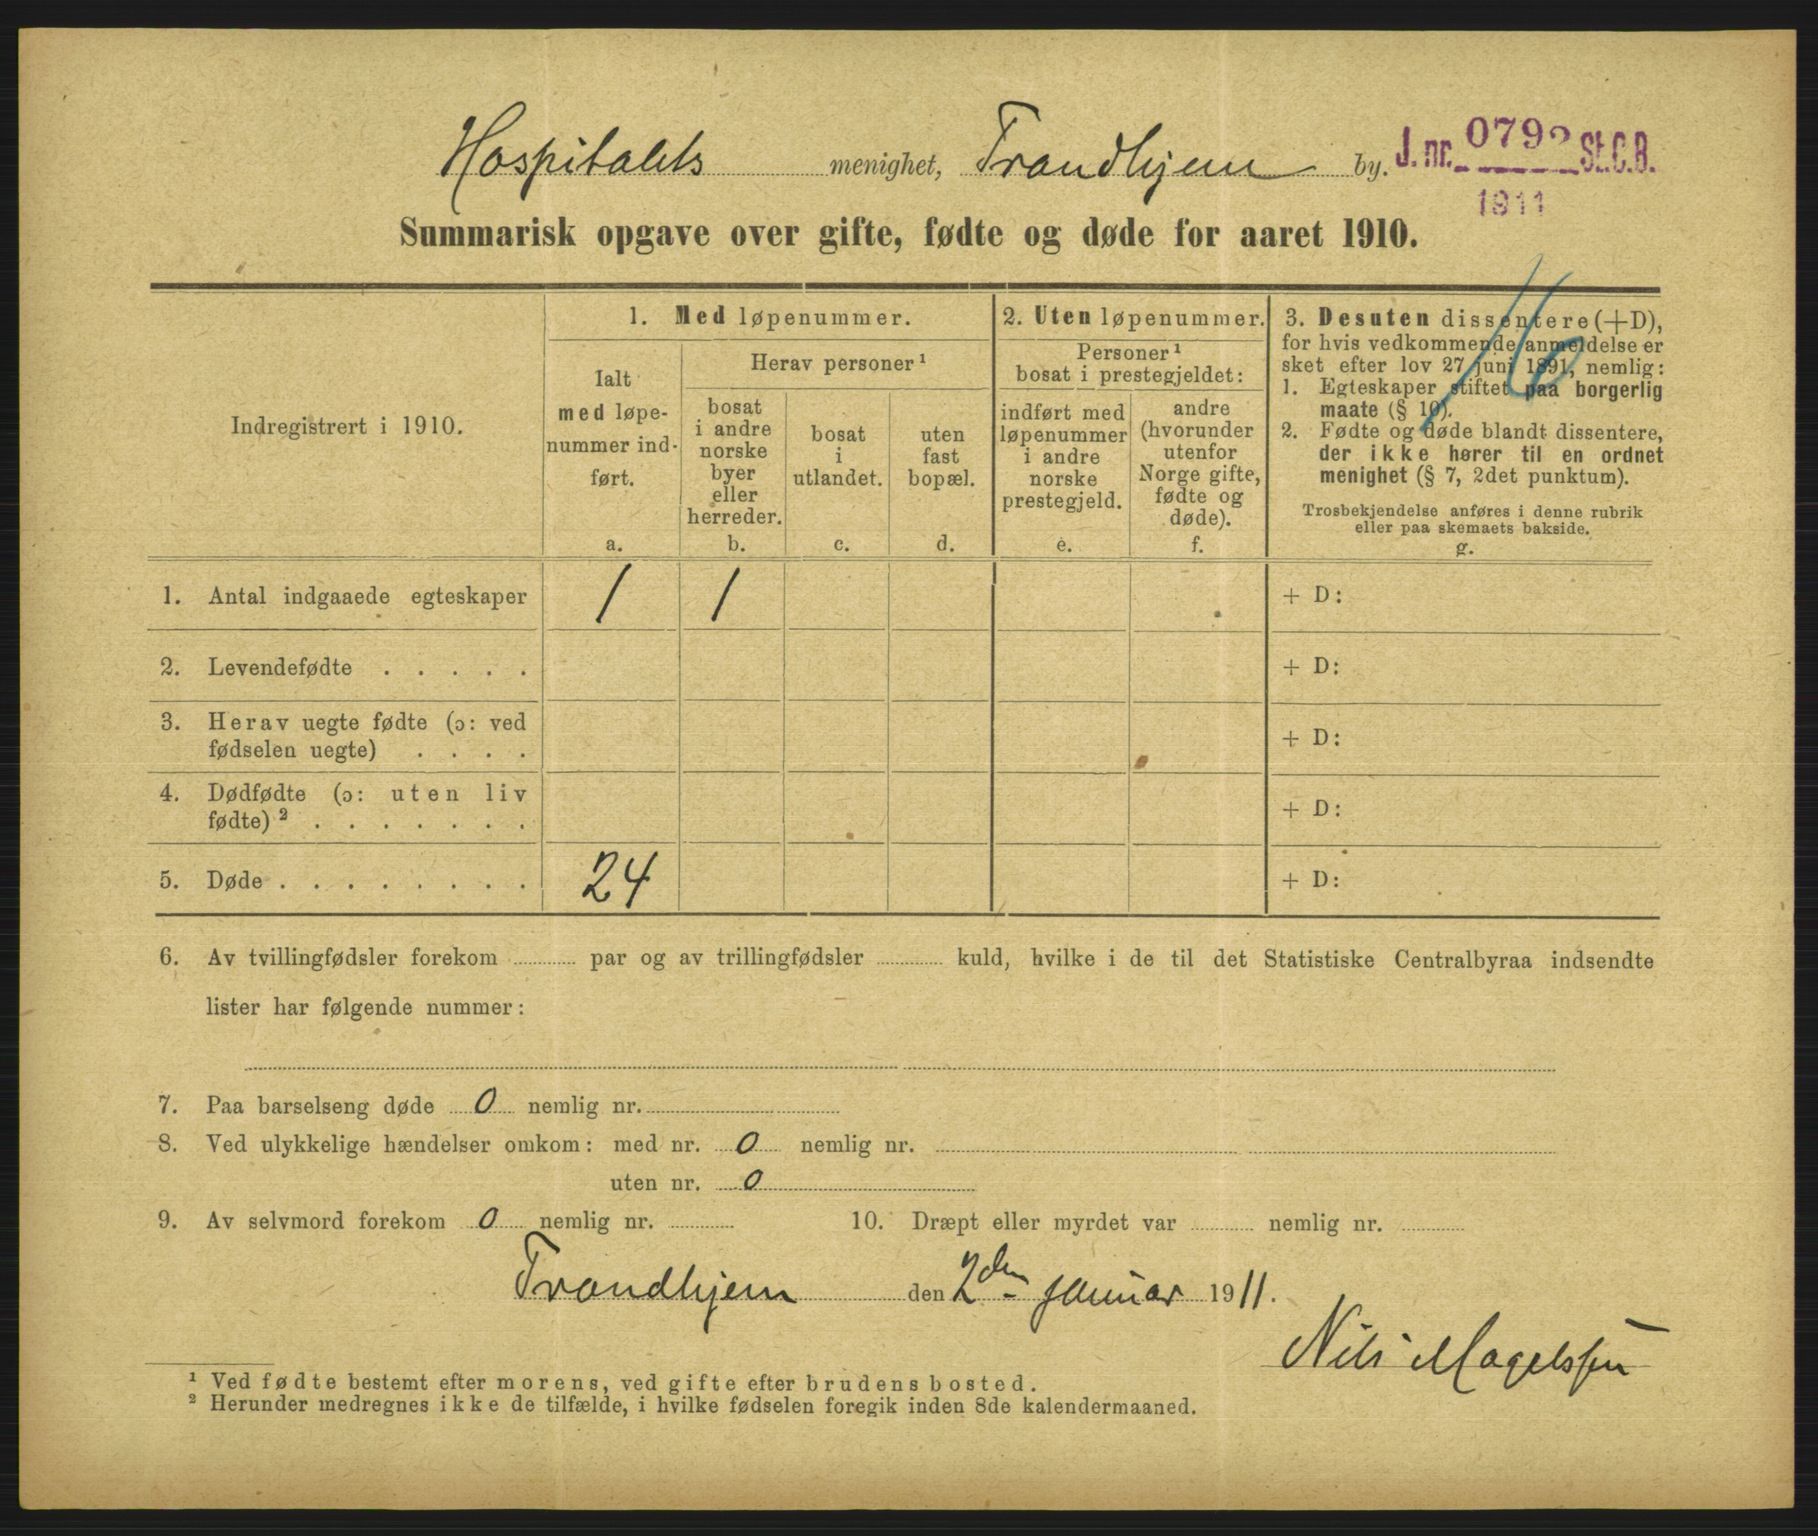 Hospitalets menighet, Trondhjem by. J. nr. 0792 St.C.B.
1911
Summarisk opgave over gifte, fødte og døde for aaret 1910.
16
Indregistrert i 1910.
1. Med løpenummer.
Ialt
med løpe-
nummer ind-
ført.
a.
Herav personer ¹
bosat
i andre
norske
byer
eller
herreder.
b.
bosat
i
utlandet.
c.
uten
fast
bopæl.
d.
2. Uten løpenummer.
Personer ¹
bosat i prestegjeldet:
indført med
løpenummer
i andre
norske
prestegjeld.
e.
andre
(hvorunder
utenfor
Norge gifte,
fødte og
døde).
f.
3. Desuten dissentere (+D),
for hvis vedkommende anmeldelse er
sket efter lov 27 juni 1891, nemlig:
1. Egteskaper stiftet paa borgerlig
maate (§ 10).
2. Fødte og døde blandt dissentere,
der ikke hører til en ordnet
menighet (§ 7, 2det punktum).
Trosbekjendelse anføres i denne rubrik
eller paa skemaets bakside.
g.
1. Antal indgaaede egteskaper 1 1 + D:
2. Levendefødte . . . . . + D:
3. Herav uegte fødte (ɔ: ved
fødselen uegte) . . . . + D:
4. Dødfødte (ɔ: uten liv
fødte) ² . . . . . . . + D:
5. Døde . . . . . . . . 24 + D:
6. Av tvillingfødsler forekom ........ par og av trillingfødsler ........ kuld, hvilke i de til det Statistiske Centralbyraa indsendte
lister har følgende nummer:
7. Paa barselseng døde 0 nemlig nr.
8. Ved ulykkelige hændelser omkom: med nr. 0 nemlig nr.
uten nr. 0
9. Av selvmord forekom 0 nemlig nr. ........ 10. Dræpt eller myrdet var ........ nemlig nr. ........
Trondhjem den 2den januar 1911.
Nils Magelssen
¹ Ved fødte bestemt efter morens, ved gifte efter brudens bosted.
² Herunder medregnes ikke de tilfælde, i hvilke fødselen foregik inden 8de kalendermaaned.